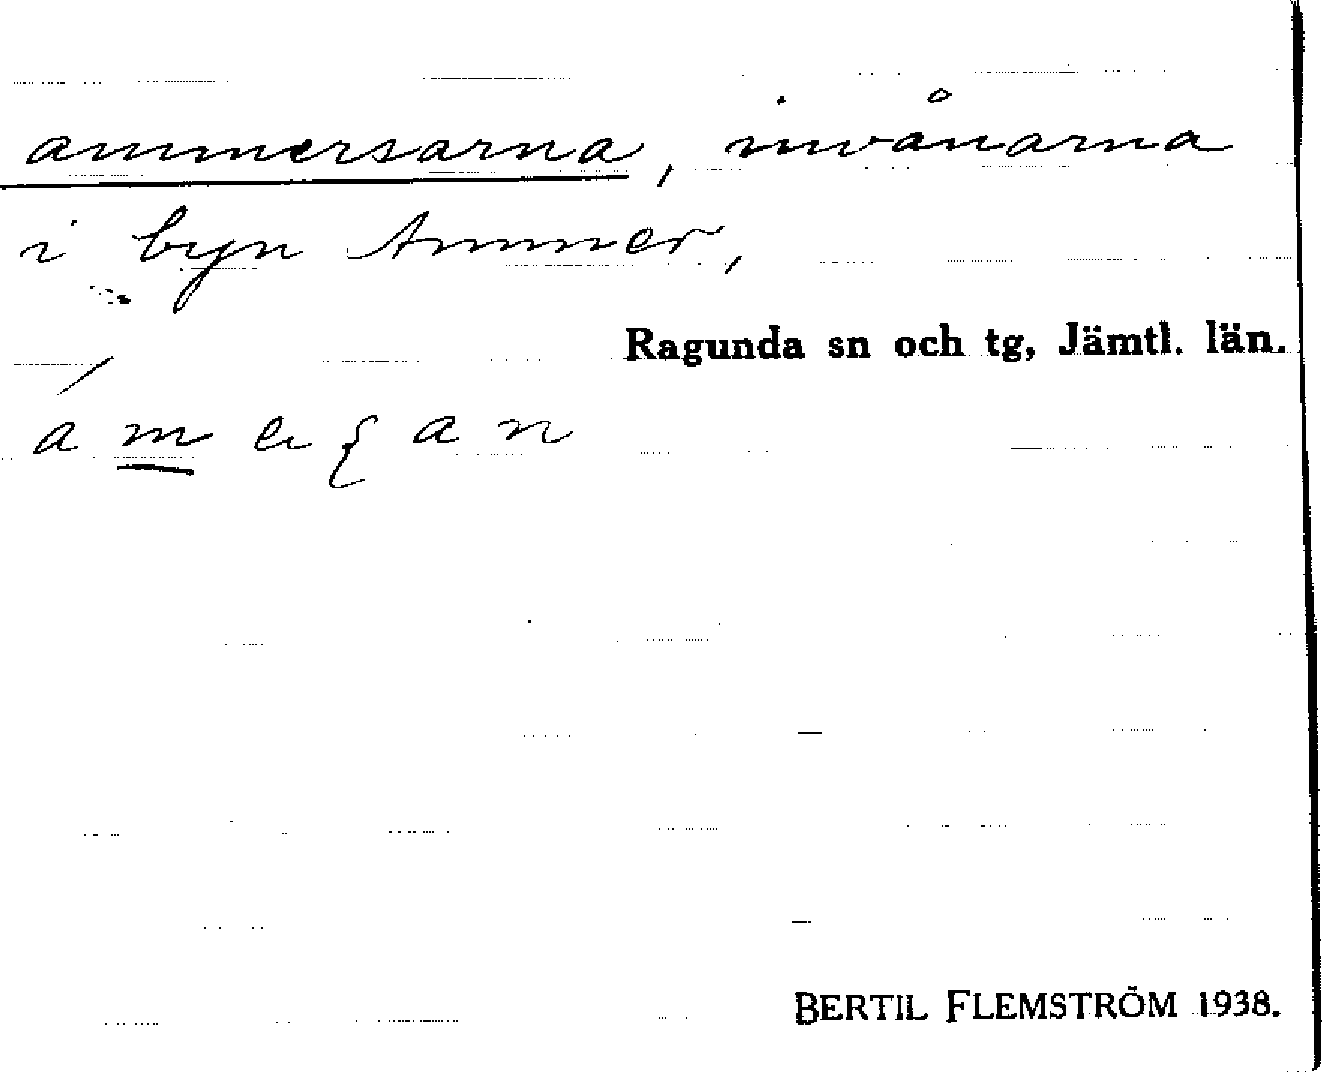 ammersarna, invånarna
i byn Ammer,
Ragunda sn och tg, Jämtl. län.
BERTIL FLEMSTRÖM 1938.